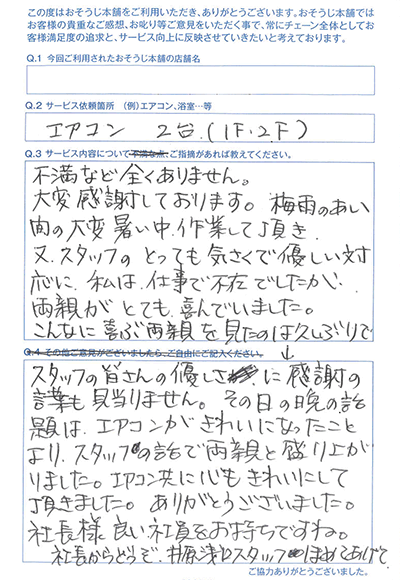 この度はおそうじ本舗をご利用いただき、ありがとうございます。おそうじ本舗では
お客様の貴重なご感想、お叱り等ご意見をいただく事で、常にチェーン全体としてお
客様満足度の追求と、サービス向上に反映させていきたいと考えております。
Q.1 今回ご利用されたおそうじ本舗の店舗名
Q.2 サービス依頼箇所 (例)エアコン、浴室…等
エアコン 2台.(1F.2F)
Q.3 サービス内容について不満な点、ご指摘があれば教えてください。
不満など全くありません。
大変感謝しております。梅雨のあい
間の大変暑い中.作業して頂き
又.スタッフの とっても気さくで優しい対
応に.私は.仕事で不在でしたが.
両親が とても.喜んでいました。
こんなに喜ぶ両親を見たのは久しぶりで
Q.4 その他ご意見がございましたら、ご自由にご記入ください。
スタッフの皆さんの優しさ に感謝の
言葉も見当りません。その日の晩の話
題は.エアコンがきれいになったこと
より.スタッフの話で両親と盛り上が
りました。エアコン共に心もきれいにして
頂きました。ありがとうございました。
社長様 良い社員をお持ちですね。
社長からどうぞ. スタッフ ほめてあげて
ご協力ありがとうございました。